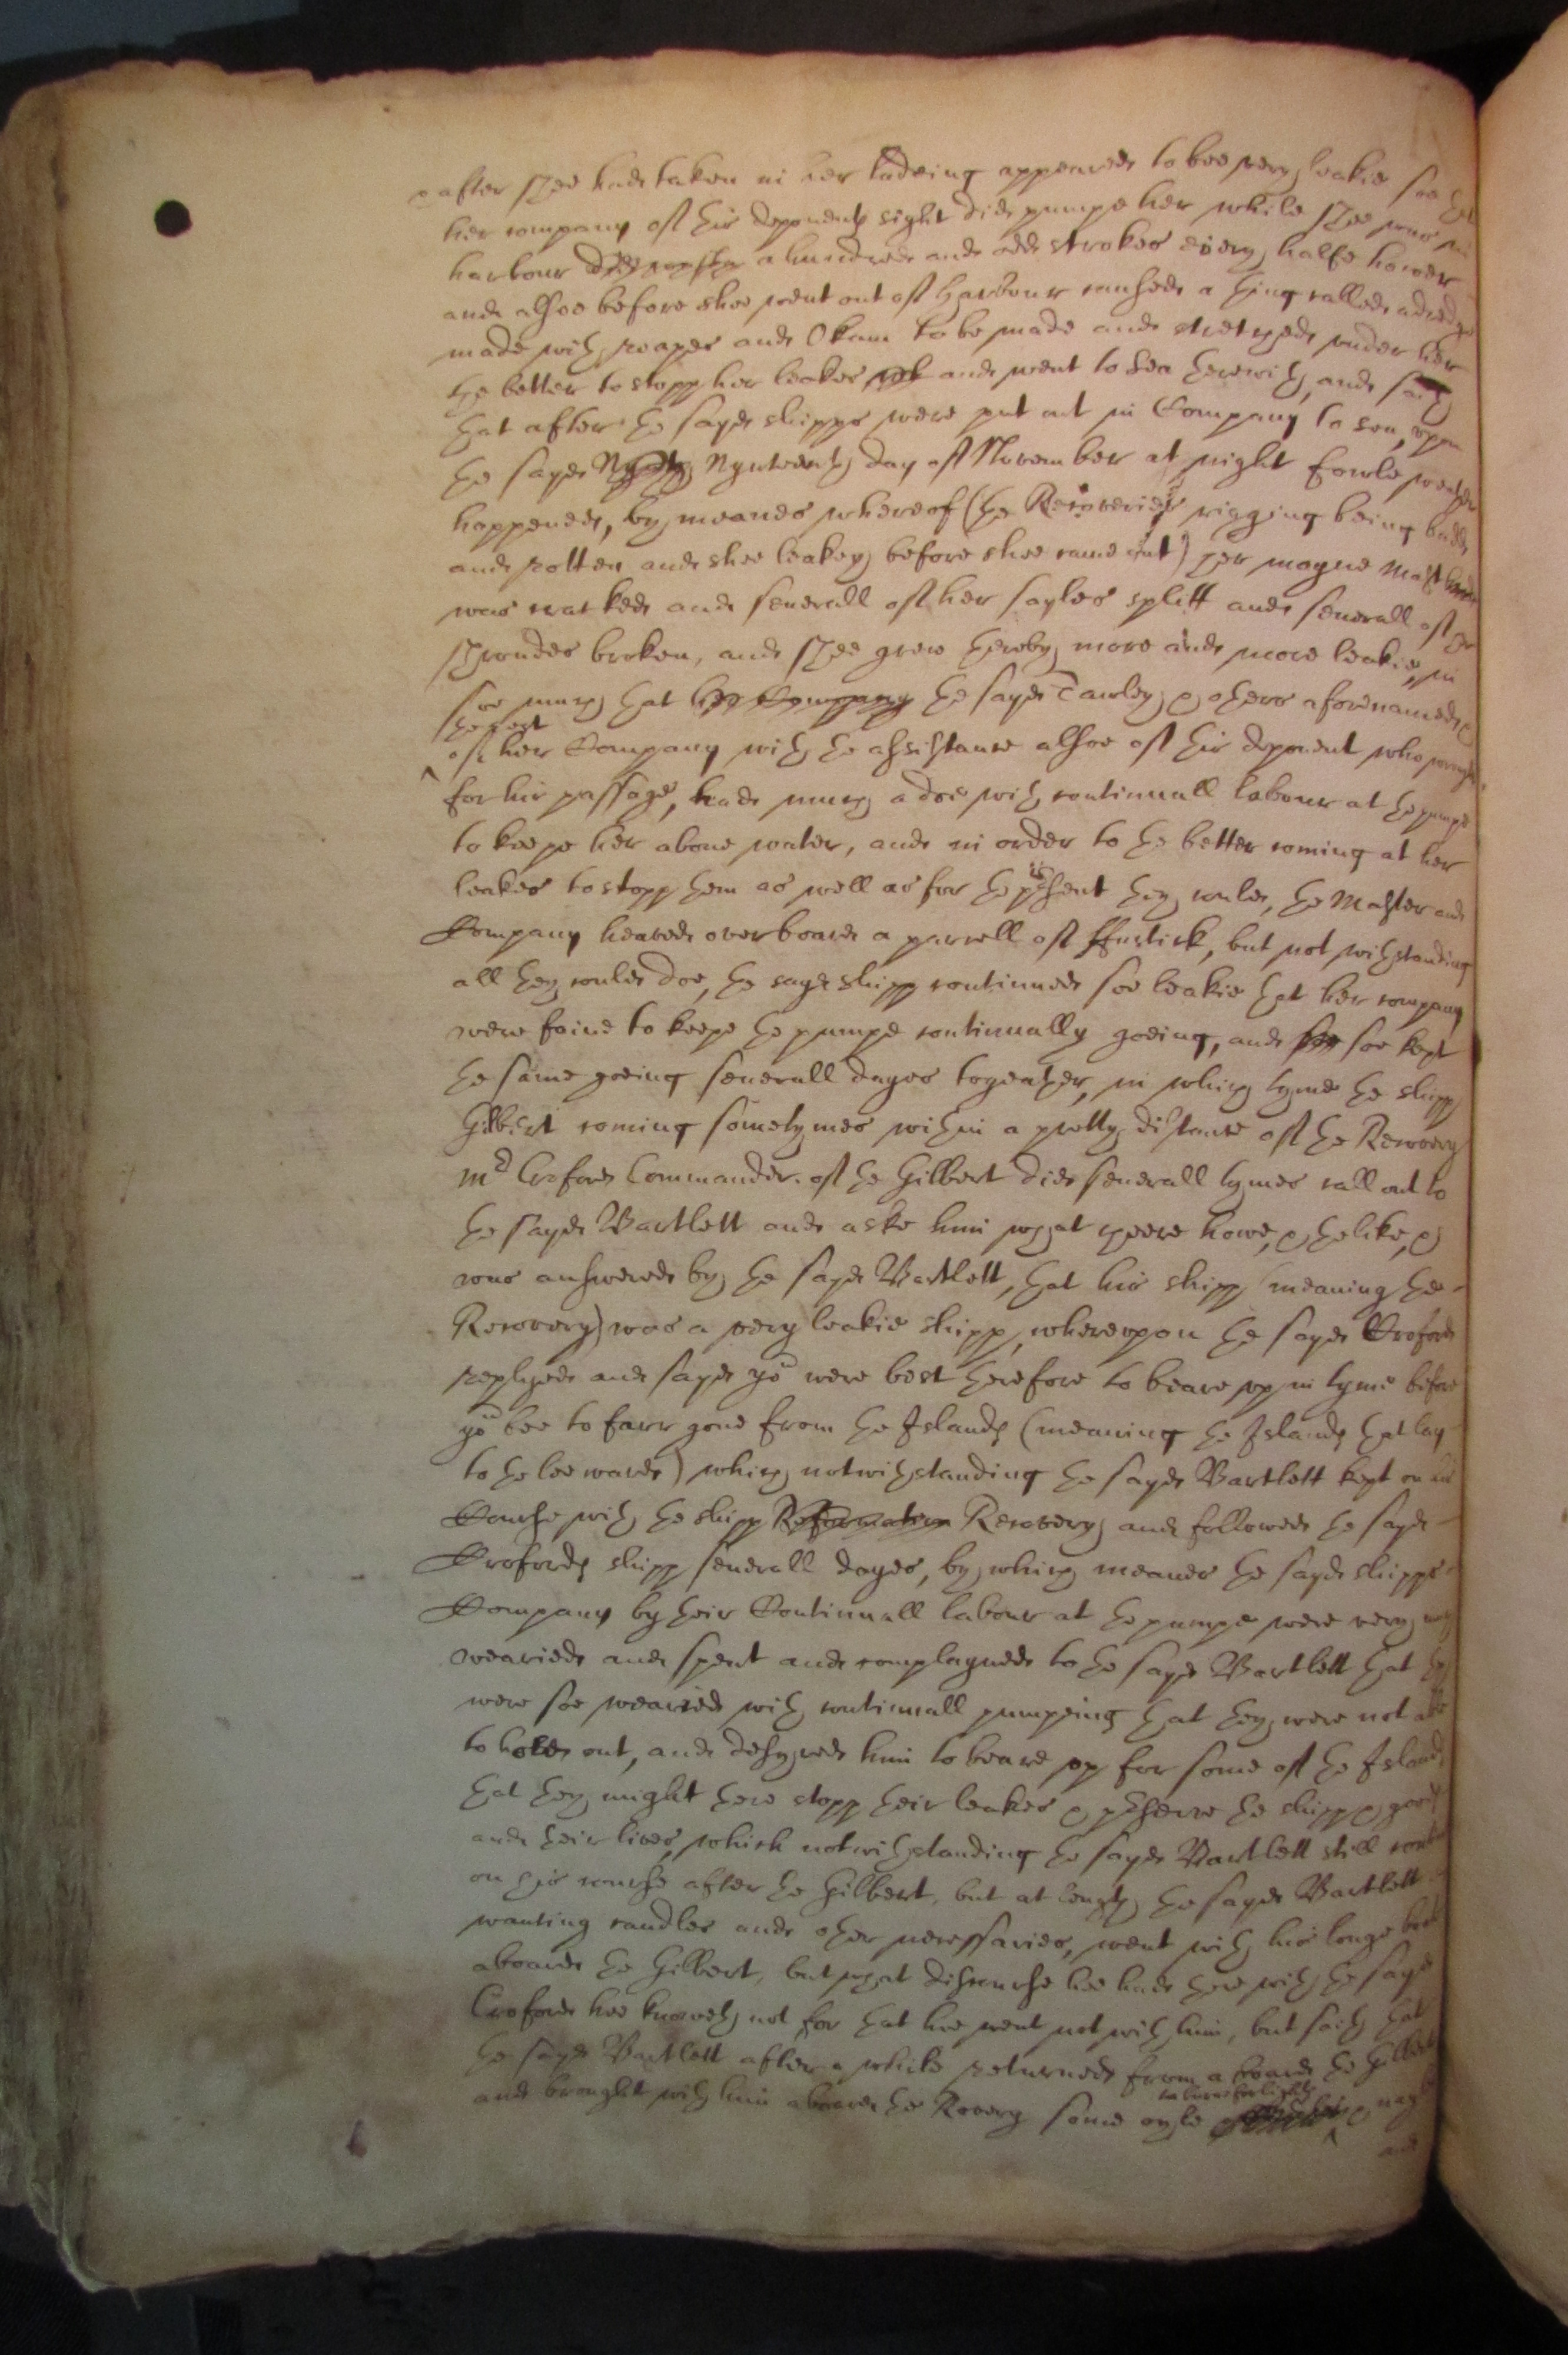 & after shee had taken in her ladeing appeared to bee very leakie soe that
her company of this deponents sight did pumpe her while shee was in
harbour a hundred and odd strokes every halfe hower
and alsoe before shee went out of harbour caused a thing called a
made with roapes and Okam to be made and stretched under her
the better to stopp her leakes and went to sea therewith, and saith
that after the sayd shipps were put out in Company to sea, upon
the sayd Nynteenth day of November at night fowle weather
happened, by meanes whereof (the Recoveries rigging being badd
and rotten and shee leakey before shee came out) her mayne Mast
was cracked and severall of her sayles splitt and severall of her
shroudes broken, and shee grew thereby more and more leakie, in
soe much that her Company the sayd Tawley & others aforenamed &
the rest
of her Company with the assistance alsoe of this deponent who wrought
for his passage, had much adoe with continuall labour at the pumpe
to keepe her above water, and in order to the better coming at her
leakes to stopp them as well as for the present they could, the Master and
Company heaved overboard a parcell of ffustick, but notwithstanding
all they could doe, the sayd shipp continued soe leakie that her company
were faine to keepe the pumpe continually goeing, and soe kept
the same goeing severall dayes togeather, in which tyme the shipp
Gilbert coming sometymes within a pretty distance of the Recovery
Mr Croford Commander of the Gilbert did severall tymes call out to
the sayd Bartlett and aske him what cheere howe, & the like, &
was answered by the sayd Bartlett, that his shipp (meaning the
Recovery) was a very leakie shipp, whereupon the sayd Croford
replyed and sayd you were best therefore to beare up in tyme before
you bee to farr gone from the Islands (meaning the Islands that lay
to the leeward) which notwithstanding the sayd Bartlett kept on his
Course with the shipp Reformation Recovery and followed the sayd
Crofords shipp severall dayes, by which meanes the sayd shipps
Company by their Continuall labour at the pumpe were very much
wearied and spent and complayned to the sayd Bartlett that they
were soe wearied with continuall pumpeing that they were not able
to hold out, and desyred him to beare up for some of the Islands
that they might there stopp their leakes & preserve the shipp & goods
and their lives, which notwithstanding the sayd Bartlett still
on his course after the Gilbert, but at length the sayd Bartlett
wanting candles and other necessaries, went with his longe boate
aboard the Gilbert, but what discourse hee had there with the sayd
Croford hee knoweth not for that hee went not with him, but saith that
the sayd Bartlett after a while returned from aboard the Gilbert
to burne for light
and brought with him aboard the Rovery some oyle &
and